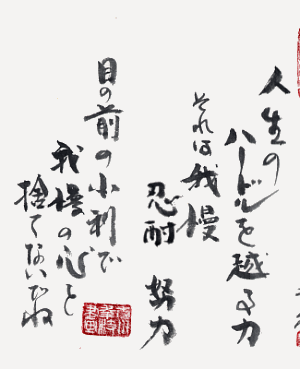 人生の
ハードルを越える力
それは我慢
忍耐 努力
目の前の小利で
我慢の心を
捨てないでね